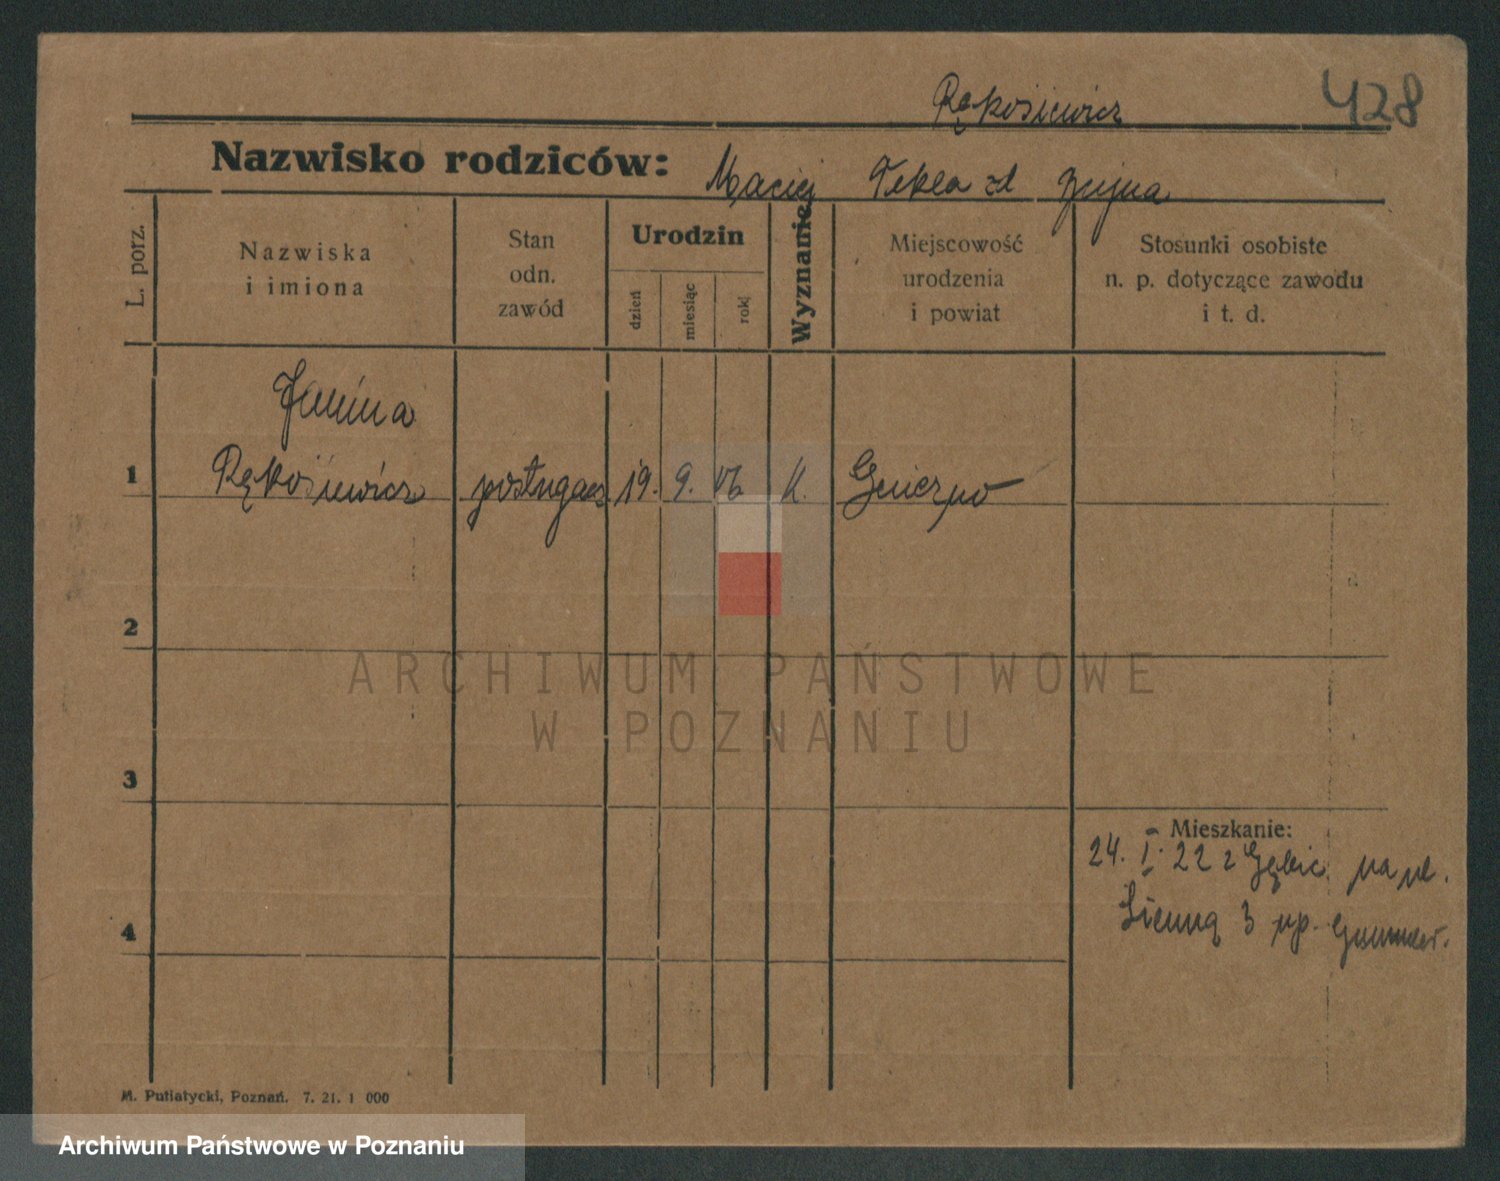 Rękosiewicz
428
Nazwisko rodziców: Maciej Tekla zd
L. porz.
Nazwiska
i imiona
Stan
odn.
zawód
Urodzin
dzień
miesiąc
rok
Wyznanie
Miejscowość
urodzenia
i powiat
Stosunki osobiste
n. p. dotyczące zawodu
i t. d.
Janina
1 Rękosiewicz posługacz 19. 9. 06 K.
2
3
4
Mieszkanie:
24. I. 22 z Gębic na ul.
Sienną 3 np.
ARCHIWUM PAŃSTWOWE
W POZNANIU
M. Putiatycki, Poznań. 7. 21. 1 000
Archiwum Państwowe w Poznaniu